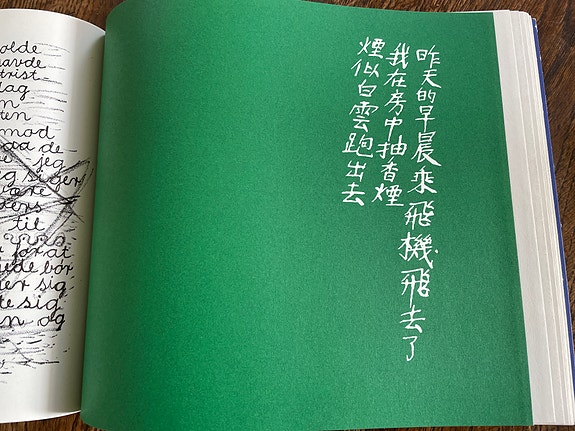 olde
avde
trist-
lag
n
ten
mod
aa de-
e jeg
g siger
være
vers
til
r forat
ude bør
er sig
te sig
n og
昨天的早晨乘飛機飛去了
我在房中抽香煙
煙似白雲跑出去